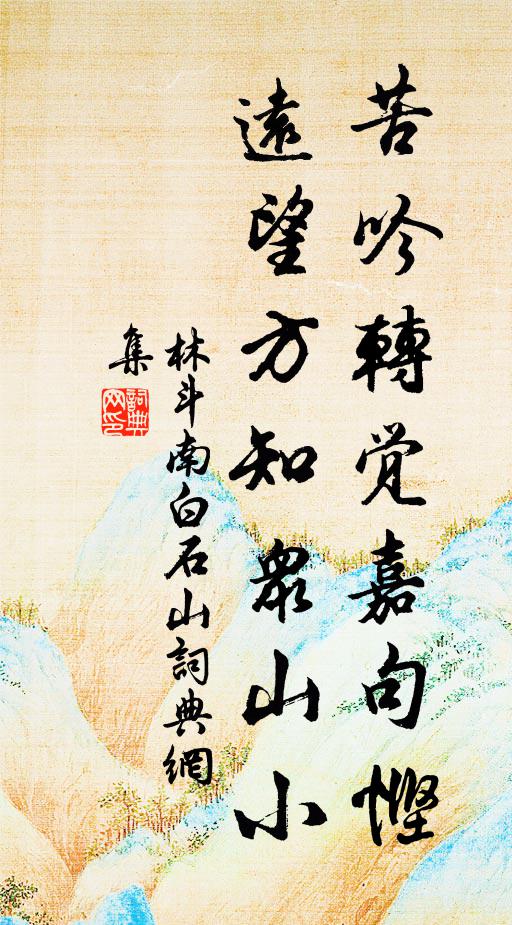 苦吟轉覺嘉句慳
遠望方知眾山小
林斗南白石山詞典網
集
詞典网印